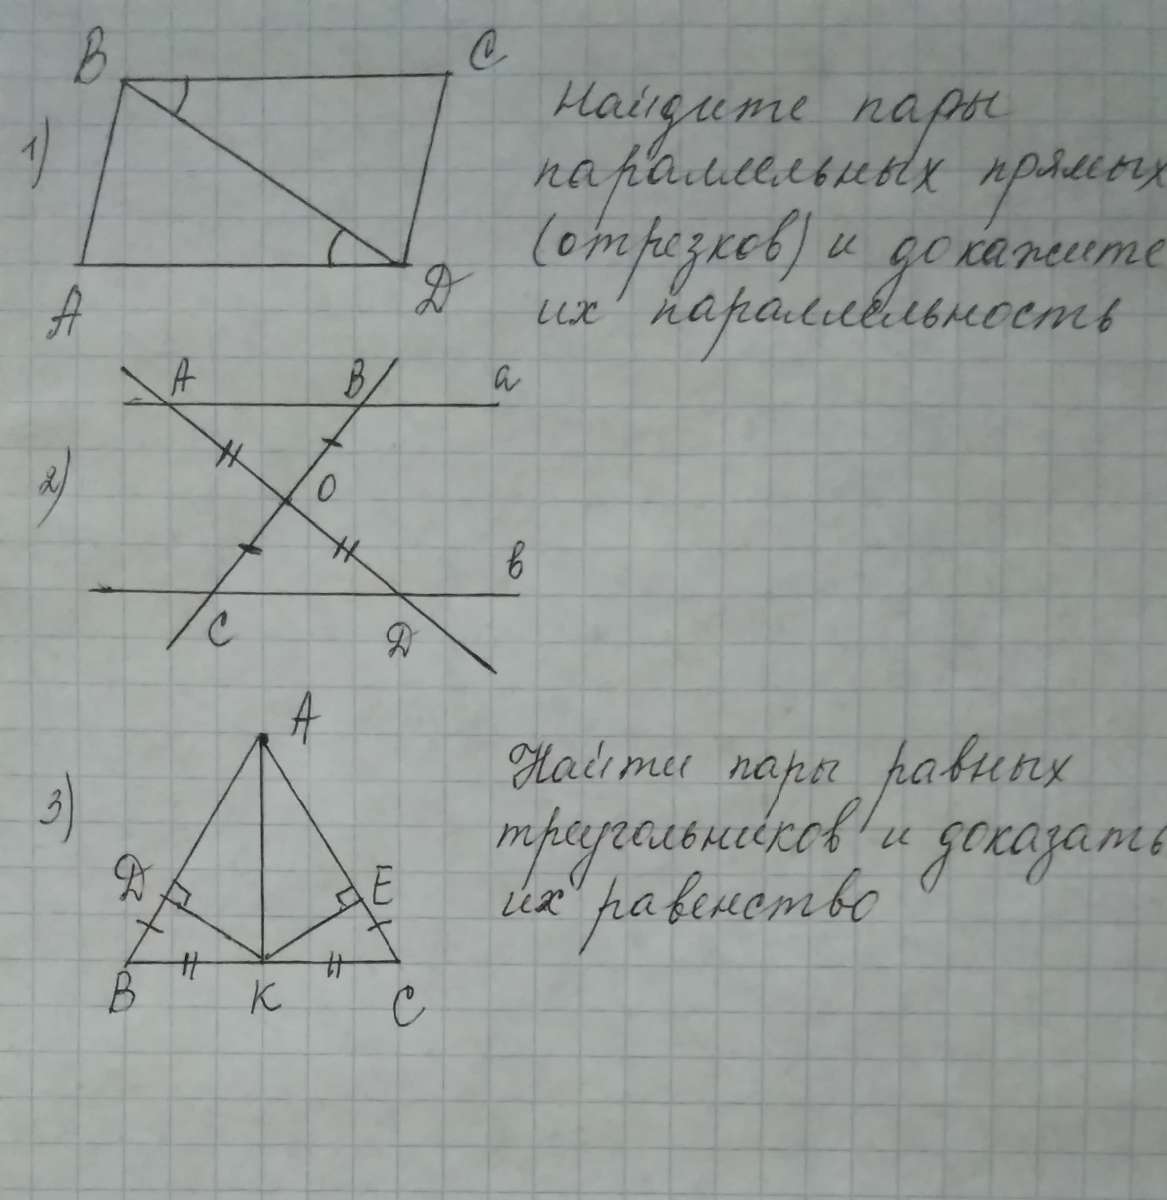 B C
1)
Найдите пары
параллельных прямых
(отрезков) и докажите
их параллельность
A D
A B a
2)
O
b
C D
A
3)
Найти пары равных
треугольников и доказать
их равенство
D E
B K C